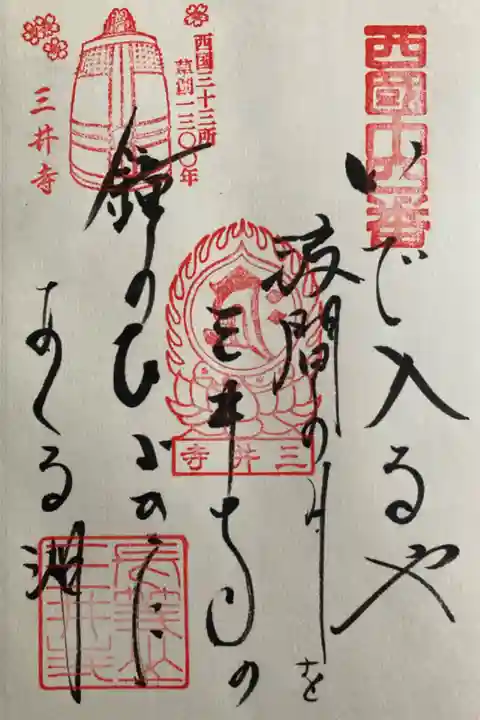 西國十四番
いで入るや
波間の月を
三井寺の
鐘のひびきに
あくる湖
西国三十三所
草創一三〇〇年
三井寺
三井寺